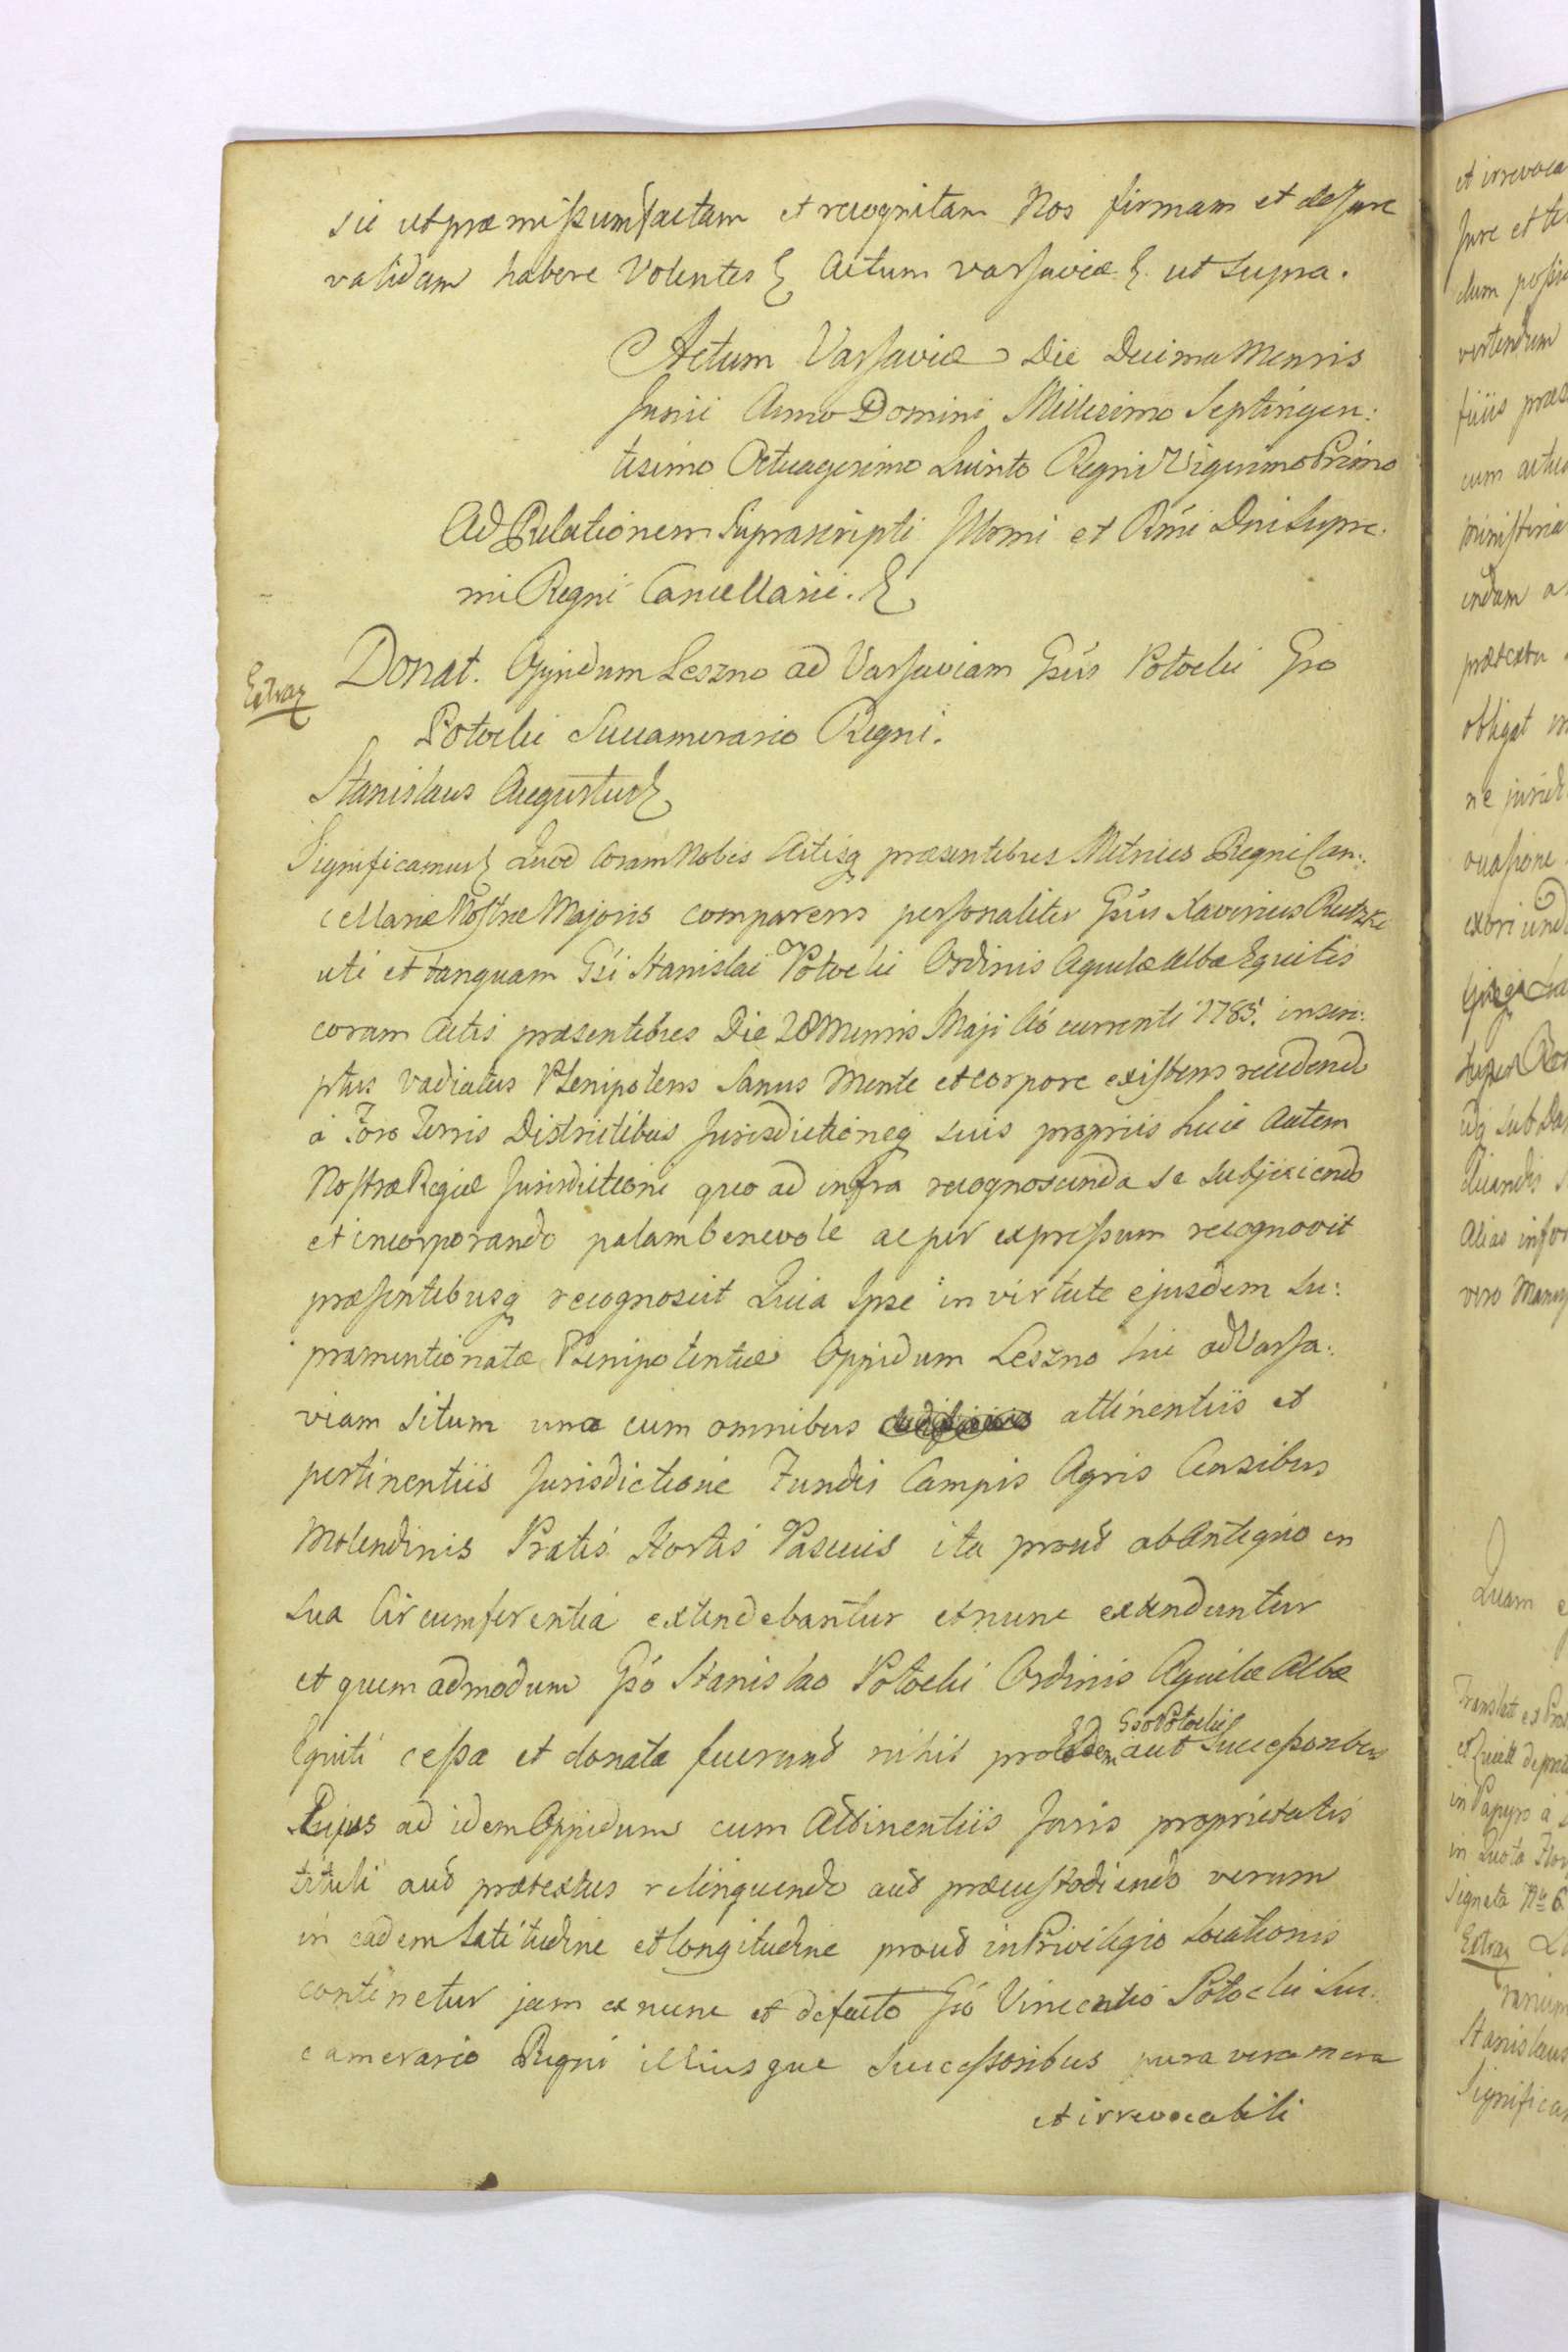 sic ut præmissum factam et recognitam Nos firmam et de Jure
validam habere Volentes & Actum Varsaviæ & ut supra.
Actum Varsaviæ Die Decima Mensis
Junii Anno Domini Millesimo Septingen:
tesimo Octuagesimo Quinto Regni Vigesimo Primo
Ad Relationem Suprascripti Illmi et Rmi Dni Supre:
mi Regni Cancellarii. &
Extrax
Donat. Oppidum Leszno ad Varsaviam Gsus Potocki Gso
Potocki Succamerario Regni.
Stanislaus Augustus &
Significamus & Quod Coram Nobis Actisq præsentibus Metrices Regni Can:
cellariæ Nostræ Majoris comparens personaliter Gsus Xaverius
uti et tanquam Gsi Stanislai Potocki Ordinis Aquilæ Albæ Equitis
coram Actis præsentibus Die 28 Mensis Maji Ao currenti 1785. inscri:
ptus vadiatus Plenipotens Sanus Mente et Corpore existens recedendo
à Foro Terris Districtibus Jurisdictioneq suis propriis huic autem
Nostræ Regiæ Jurisdictioni quo ad infra recognoscenda se subjiciendo
et incorporando palam benevole ac per expressum recognovit
præsentibusq recognoscit Quia Ipse in virtute ejusdem Su:
pramentionatæ Plenipotentiæ Oppidum Leszno hic ad Varsa:
viam Situm una cum omnibus attinentiis et
pertinentiis Jurisdictione Fundis Campis Agris Censibus
Molendinis Pratis Hortis Pascuis ita prout ab Antiquo in
sua Circumferentia extendebantur et nunc extenduntur
et quemadmodum Gso Stanislao Potocki Ordinis Aquilæ Albæ
Equiti cessa et donata fuerunt nihil pro Eodem Gso Potocki aut Successoribus
Ejus ad idem Oppidum cum Attinentiis Juris proprietatis
tituli aut prætextus relinquendo aut præcustodiendo verum
in eadem Latitudine et longitudine prout in Privilegio Locationis
continetur jam ex nunc et de facto Gso Vincentio Potocki Suc:
camerario Regni illiusque Successoribus pura vera mera
et irrevocabili
et irrevoca
Jure et ti
vertendum
cum actu
endam a
obligat
exoriund
Alias infor
Quam e
in Papyro a
Extrax
Stanislaus
Significa